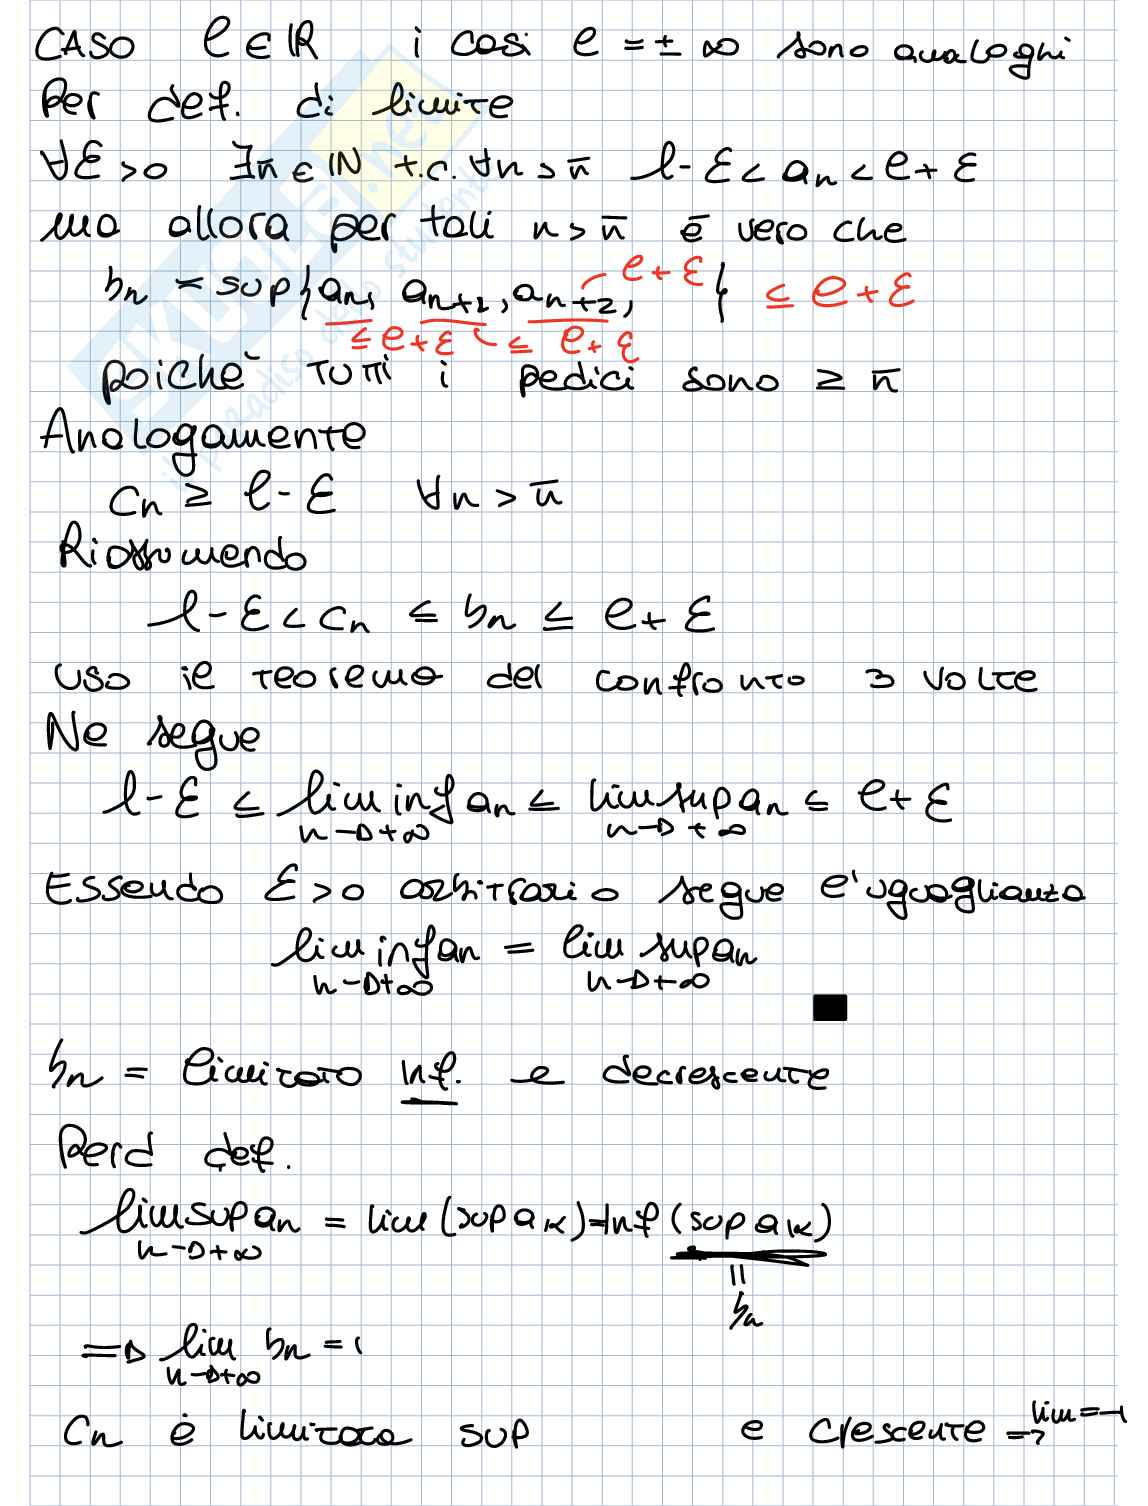 CASO ℓ ∈ ℝ i casi ℓ = ± ∞ sono analoghi
Per def. di limite
∀ε > 0 ∃n̄ ∈ ℕ t.c. ∀n > n̄ ℓ - ε < aₙ < ℓ + ε
ma allora per tali n > n̄ è vero che
bₙ = sup{aₙ, aₙ₊₁, aₙ₊₂, } ≤ ℓ + ε
ℓ + ε
≤ ℓ + ε ≤ ℓ + ε
poichè TUTTI i pedici sono ≥ n̄
Analogamente
cₙ ≥ ℓ - ε ∀n > n̄
Riassumendo
ℓ - ε < cₙ ≤ bₙ ≤ ℓ + ε
uso il teorema del confronto 3 volte
Ne segue
ℓ - ε ≤ lim inf aₙ ≤ lim sup aₙ ≤ ℓ + ε
n→+∞ n→+∞
Essendo ε > 0 arbitrario segue l'uguaglianza
lim inf aₙ = lim sup aₙ
n→+∞ n→+∞
bₙ = limitato inf. e decrescente
Perd def.
lim sup aₙ = lim (sup aₖ) = Inf (sup aₖ)
n→+∞
=
bₙ
⇒ lim bₙ = (
n→+∞
Cₙ è limitata sup e crescente ⇒ lim = -